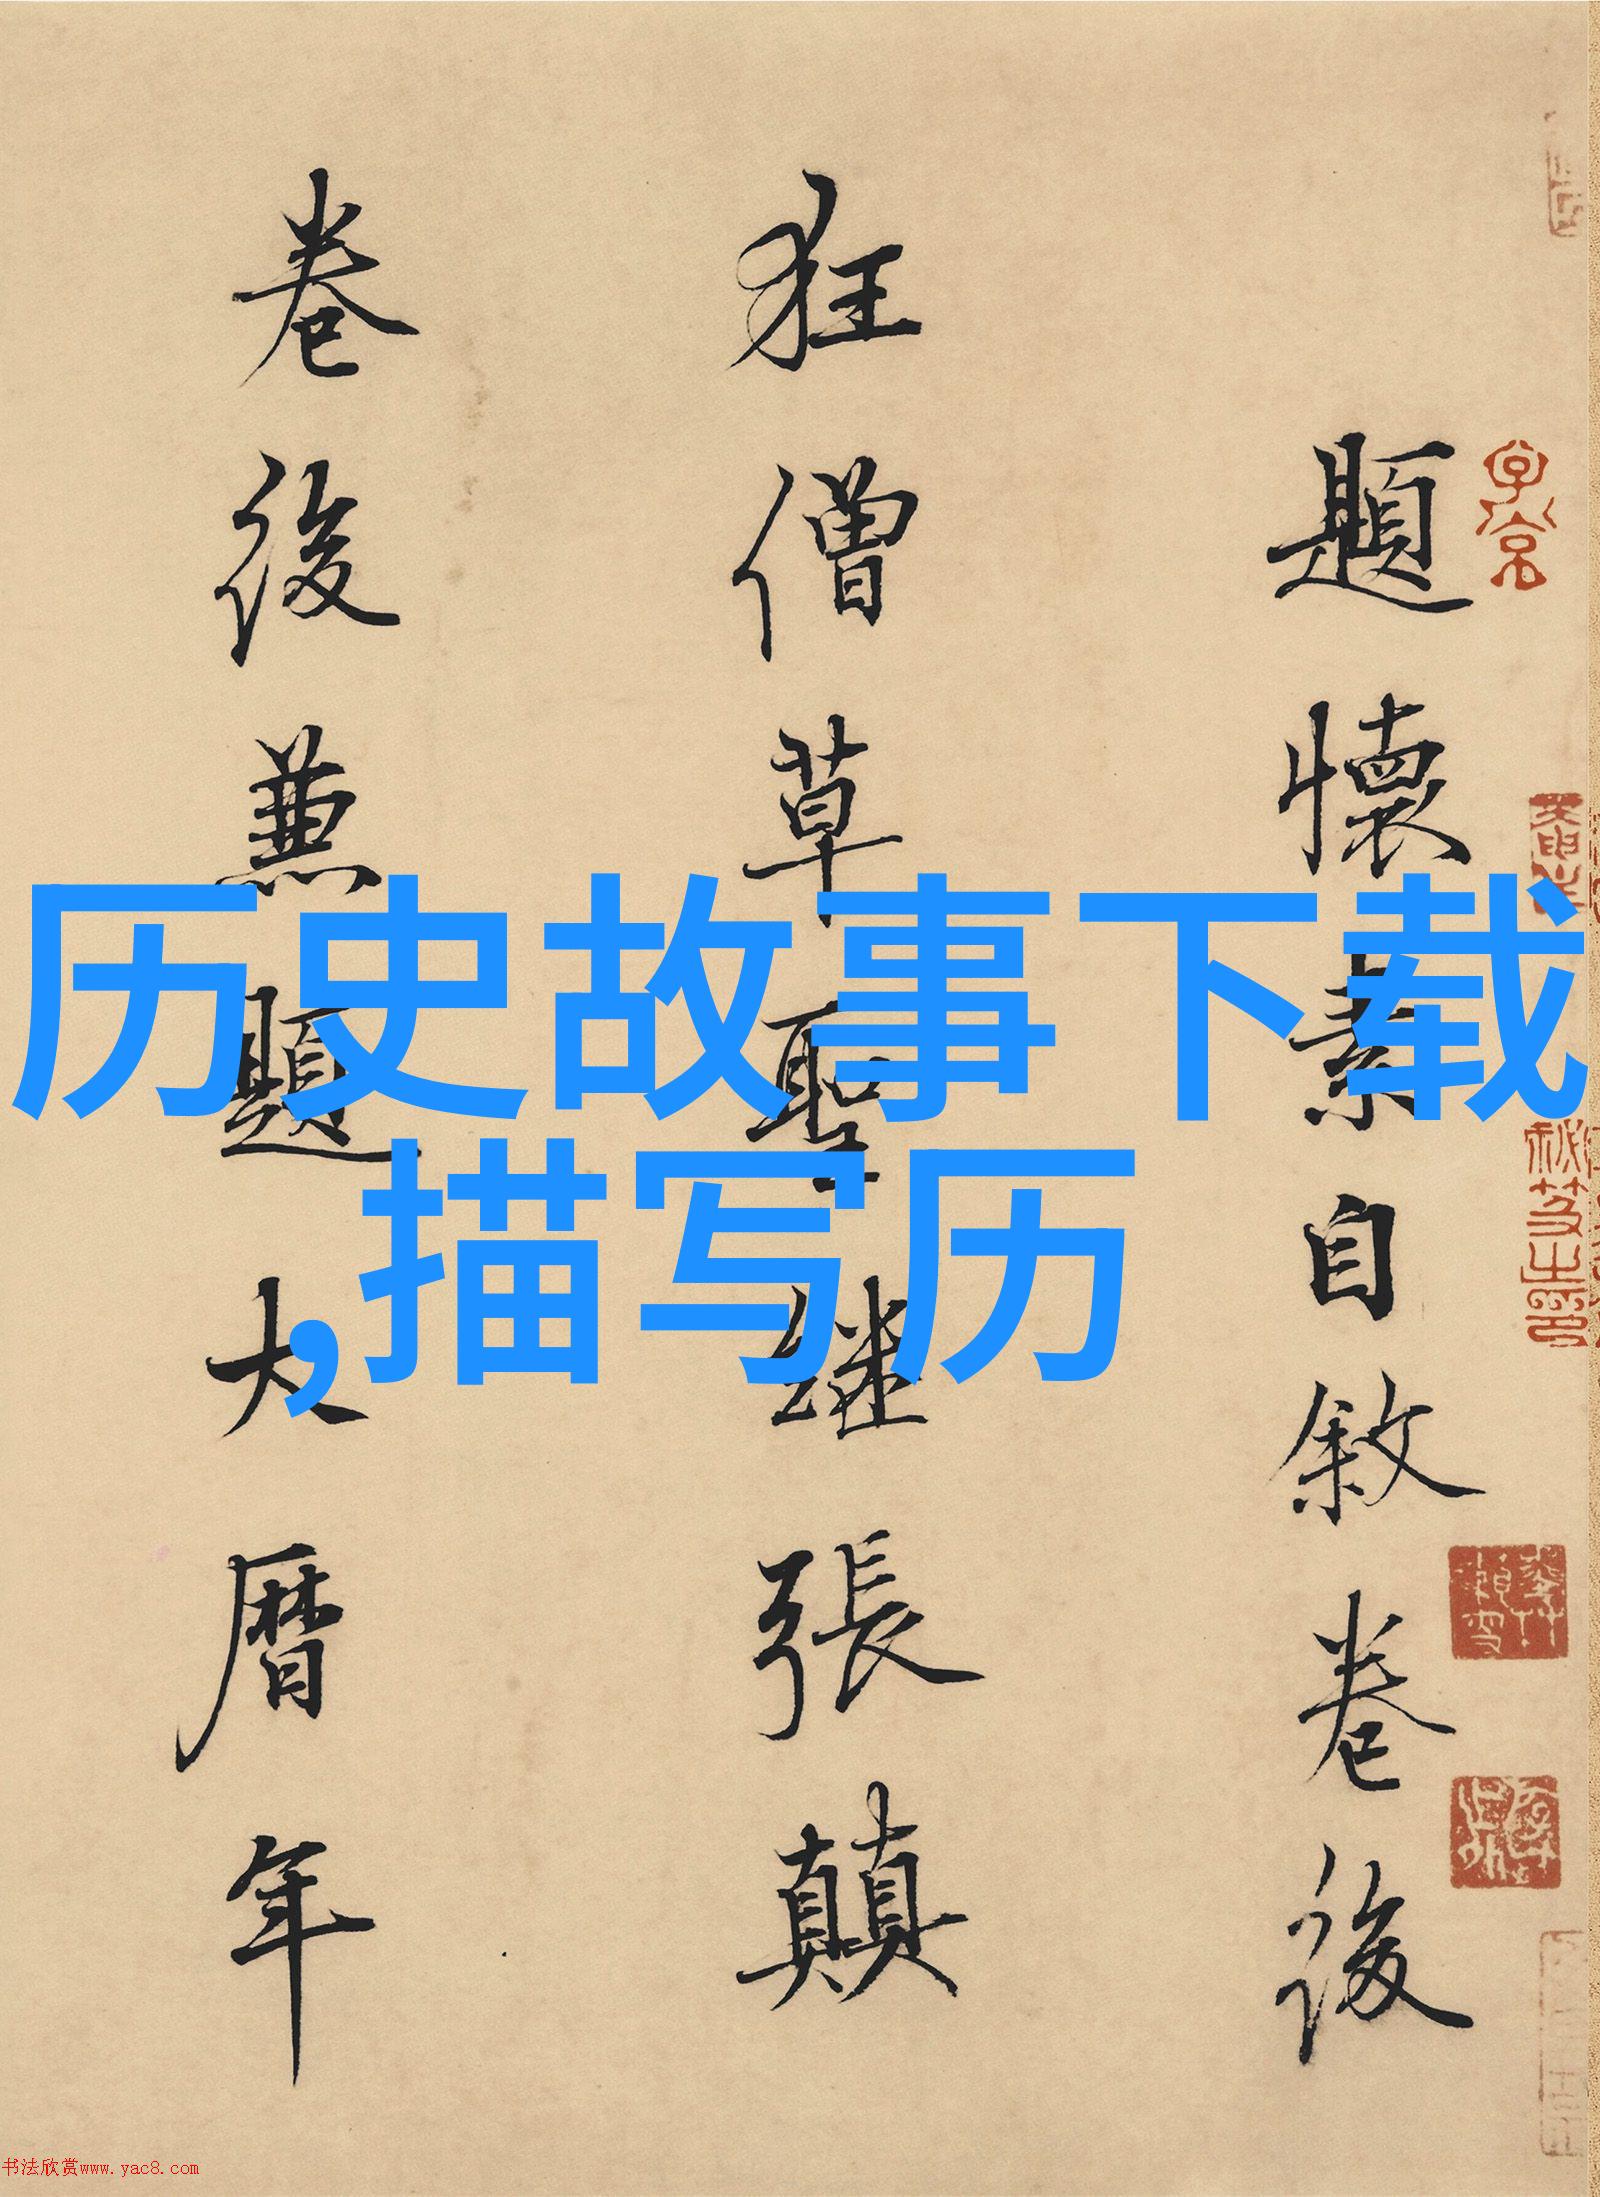 题懷素自敘卷後
狂僧草聖继張顛
卷後兼題大曆年
历史故事下载
,描写历
书法欣赏www.yac8.com